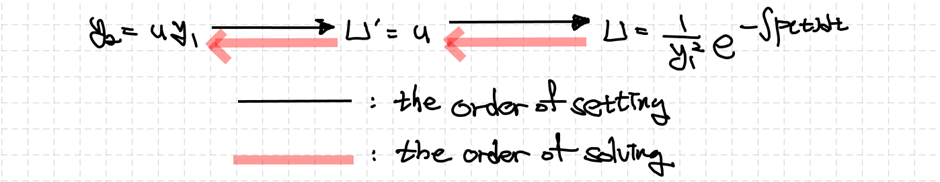 y₂ = u y₁ → ⊔' = u → ⊔ = 1/y₁² e^(-∫p(t)dt)
: the order of setting
: the order of solving